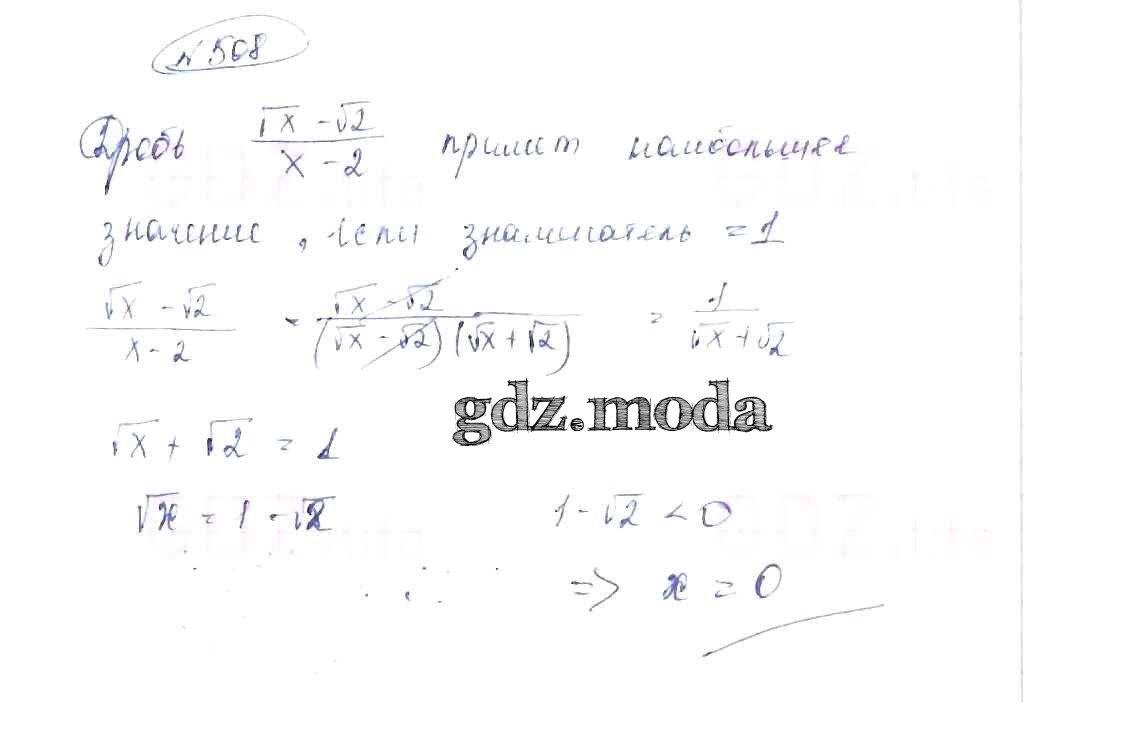 № 508
Дробь (√x - √2)/(x - 2) примет наибольшее
значение, если знаменатель = 1
(√x - √2)/(x - 2) = (√x - √2)/((√x - √2)(√x + √2)) = 1/(√x + √2)
gdz.moda
√x + √2 = 1
√x = 1 - √2 1 - √2 < 0
=> x = 0